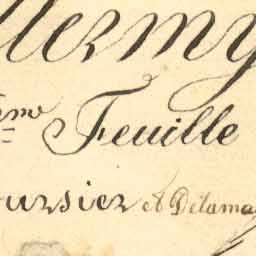 llermy
ème Feuille
oursier et Delama